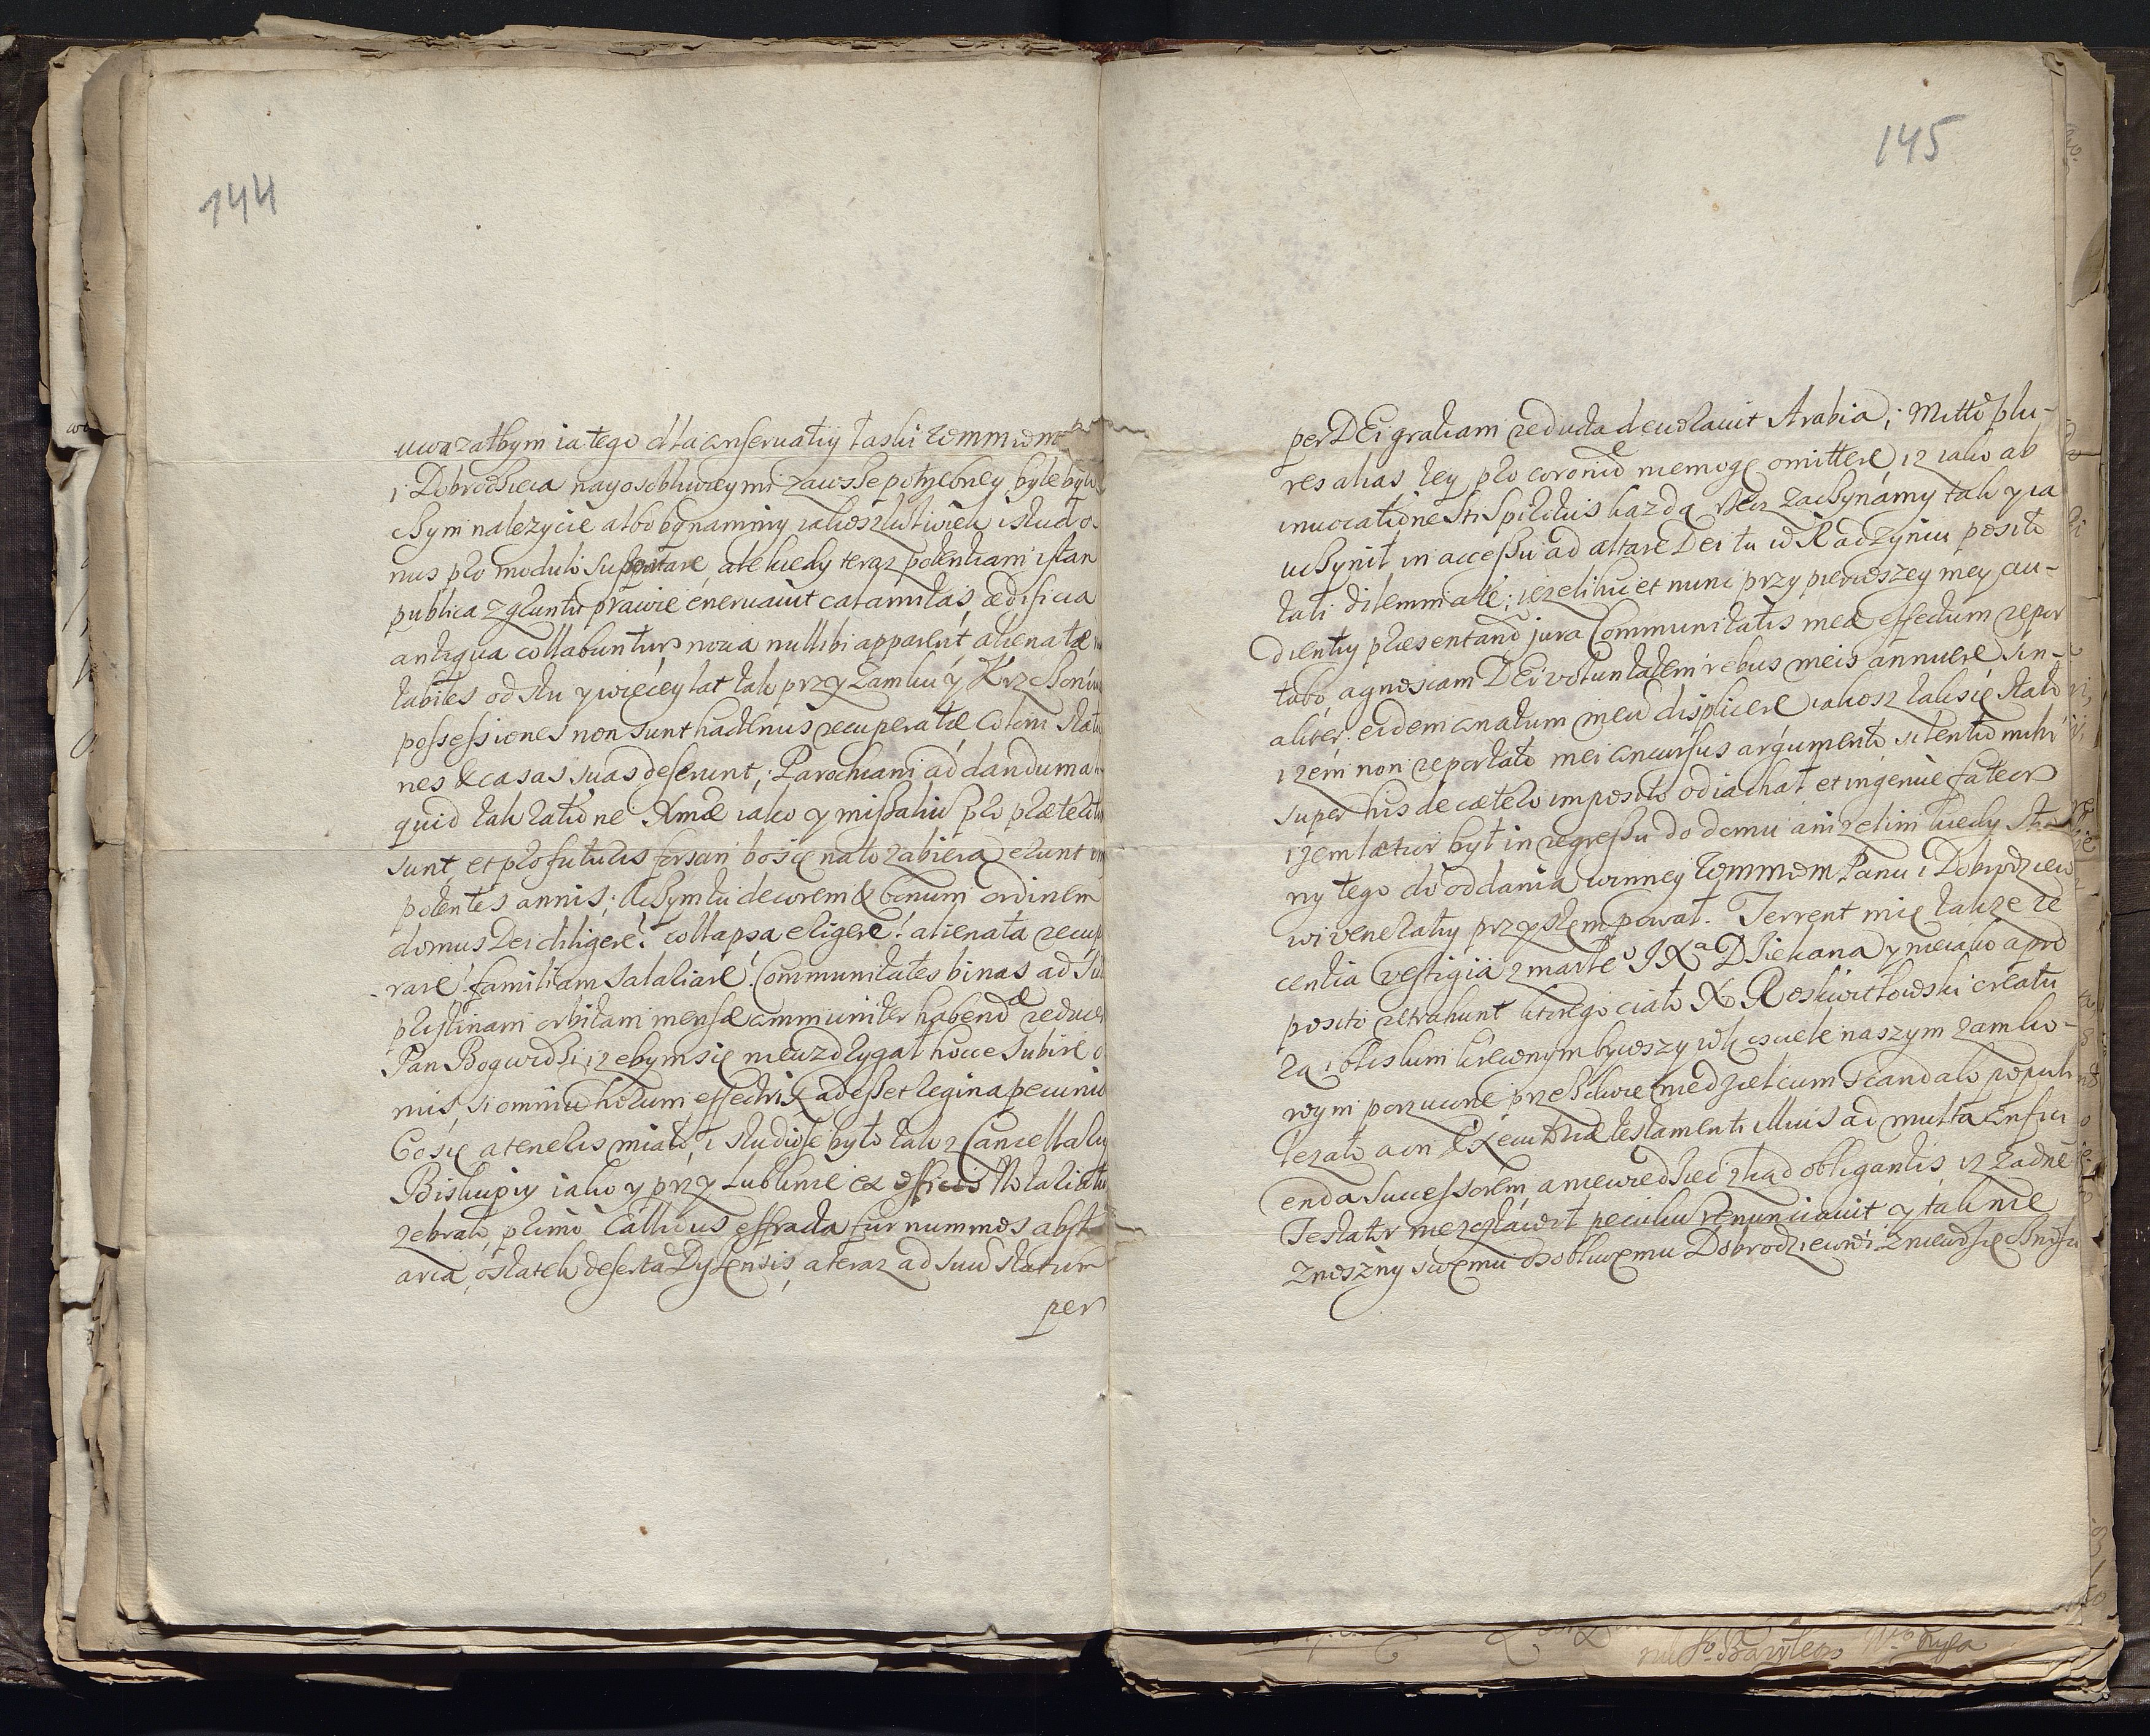 144
uwazałbym ia tego dla conseruatiy łaski WMM
i Dobrodzieia nayosobliwszey mi zawsze potrzebney byle było
czym nalezycie albo bynaminiy iakoszkolwiek istud o-
nus pro modulo supportare, ale kiedy teraz potentiam istan
publica z gruntu prawie eneruauit calamitas, ædificia
antiqua collabuntur, noua nullibi apparent, alienatæ
tabiles od stu y wiecey lat tak przy Zamku y
possessiones non sunt hactenus recuperatæ Coloni
nes & casas suas deserunt; Parochiani ad dandum
quid tak ratione Xmæ iako y missaliu pro
sunt, et pro futuris forsan bo się na to zabiera erunt
potentes annis; Aczym tu decorem & bonum ordinem
domus Dei diligere? collapsa erigere! alienata recup
rare! familiam salariare! Communitates binas ad
pristinam orbitam mensæ communiter habendæ
Pan Bog widzi, izebym sie niewzdrygał hocce subire o-
nus, si omniu horum effectrix adesset regina pecunia
Co się a teneris miało, i studiose było tak z Cancellariy
Biskupiy iako y przy Lublinie ex officio
zebrało, primo Callidus effracta fur nummos
arca, ostatek deserta a teraz ad suu statum
per
145
per DEi gratiam reducta deuorauit Arabia; Mitto plu-
res alias, tey pro coronide niemogę omittere, iz iako ab
inuocatione Sti Spiritus kazdą rzecz zaczynamy tak y ia
uczynił in accessu ad altare Dei tu w Radzyniu posito
tali dilemmate; iezeli hic et nunc przy pierwszey mey au-
dientiy præsentand jura Communitatis meæ effectum repor
tabo, agnoscam DEi voluntatem rebus meis annuere, sin-
aliter: eidem conatum meu displicere, iakosz tak się stało
izem non reportato mei concursus argumento, silentio mihi
super his de cætero imposito odiachał, et ingenue fateor
izem lætior był in regressu do domu anizelim kiedy
ny tego do oddania winney WMMM Panu i Dobrodziew
wi veneratiy przystempował. Terrent mię takze re
centia vestigia zmarłeo JXa Dziekana y nieiako a pro
posito retrahunt, ktorego ciało X Roskwitowski creatu
za i bliskim krewnym bywszy w kosciele naszym zamko-
wym porzucone przeszłwie niedziel cum scandalo populi
lezało, a on Executorie testamenti illius ad multa
enda successorem, a niewiedziec zkąd obligantis, iz zadne
Testator niezostawił peculiu renunciauit, y tak nie
znoszny swemu osobliwemu Dobrodziewi